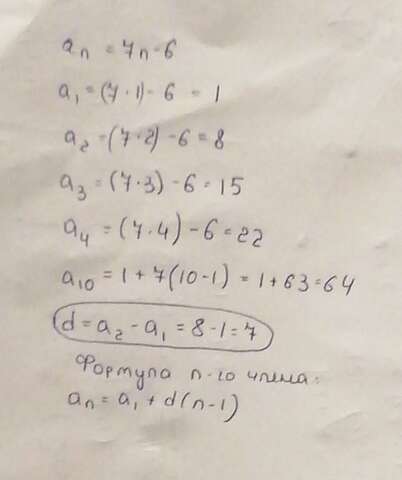 aₙ = 7n-6
a₁ = (7·1) - 6 = 1
a₂ = (7·2) - 6 = 8
a₃ = (7·3) - 6 = 15
a₄ = (7·4) - 6 = 22
a₁₀ = 1 + 7(10-1) = 1 + 63 = 64
d = a₂ - a₁ = 8 - 1 = 7
Формула n-го члена:
aₙ = a₁ + d(n-1)